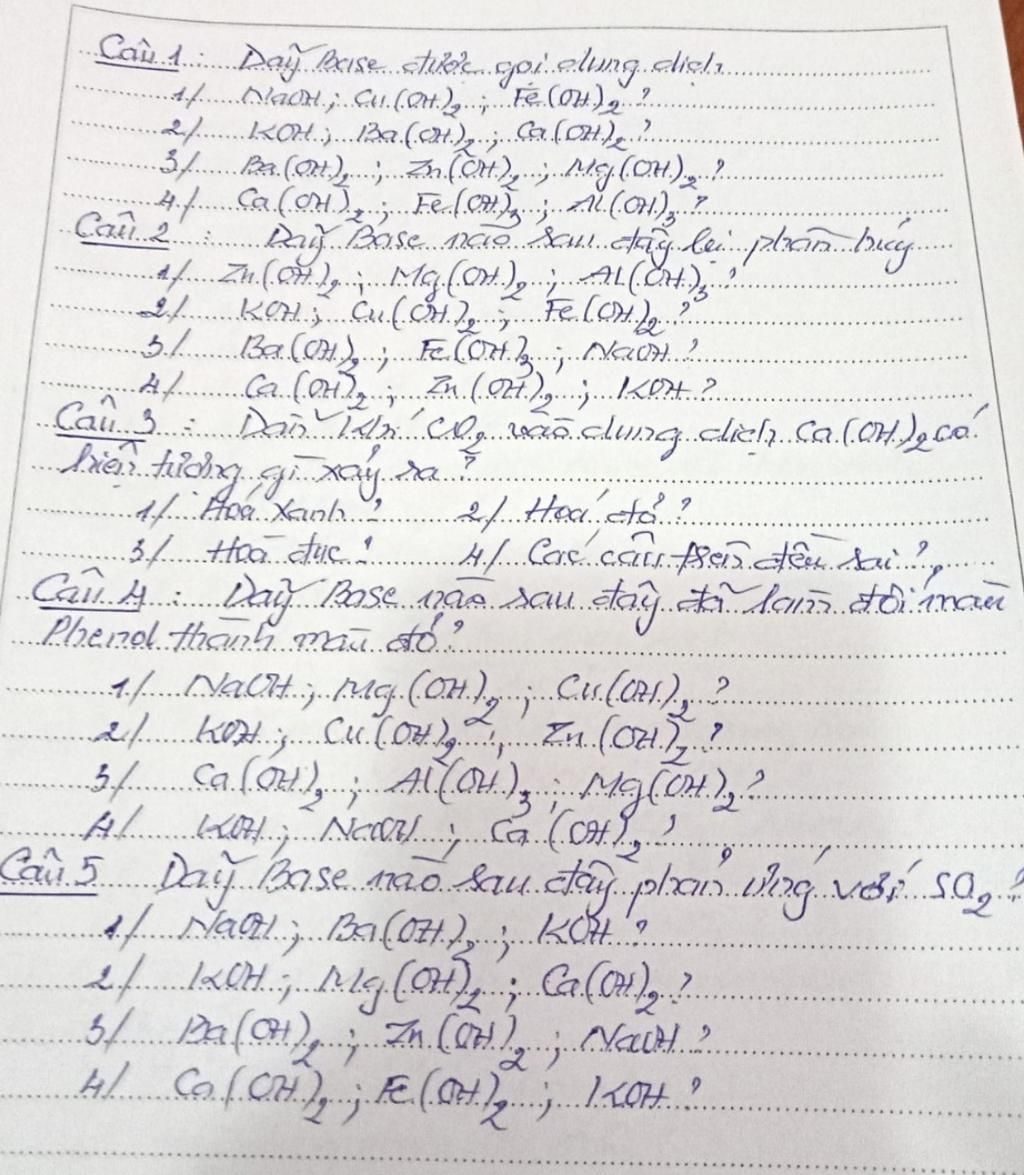 Câu 1 : Dãy Base được gọi dung dịch
1/ NaOH ; Cu(OH)2 ; Fe(OH)2 ?
2/ KOH ; Ba(OH)2 ; Ca(OH)2 ?
3/ Ba(OH)2 ; Zn(OH)2 ; Mg(OH)2 ?
4/ Ca(OH)2 ; Fe(OH)3 ; Al(OH)3 ?
Câu 2 : Dãy Base nào sau đây bị phân hủy
1/ Zn(OH)2 ; Mg(OH)2 ; Al(OH)3 ?
2/ KOH ; Cu(OH)2 ; Fe(OH)2 ?
3/ Ba(OH)2 ; Fe(OH)3 ; NaOH ?
4/ Ca(OH)2 ; Zn(OH)2 ; KOH ?
Câu 3 : Dẫn khí CO2 vào dung dịch Ca(OH)2 có
hiện tượng gì xảy ra ?
1/ Hoá xanh ? 2/ Hoá đỏ ?
3/ Hoá đục ? 4/ Các câu trên đều sai ?
Câu 4 : Dãy Base nào sau đây đã làm đổi màu
Phenol thành màu đỏ ?
1/ NaOH ; Mg(OH)2 ; Cu(OH)2 ?
2/ KOH ; Cu(OH)2 ; Zn(OH)2 ?
3/ Ca(OH)2 ; Al(OH)3 ; Mg(OH)2 ?
4/ KOH ; NaOH ; Ca(OH)2 ?
Câu 5 Dãy Base nào sau đây phản ứng với SO2 ?
1/ NaOH ; Ba(OH)2 ; KOH ?
2/ KOH ; Mg(OH)2 ; Ca(OH)2 ?
3/ Ba(OH)2 ; Zn(OH)2 ; NaOH ?
4/ Ca(OH)2 ; Fe(OH)2 ; KOH ?